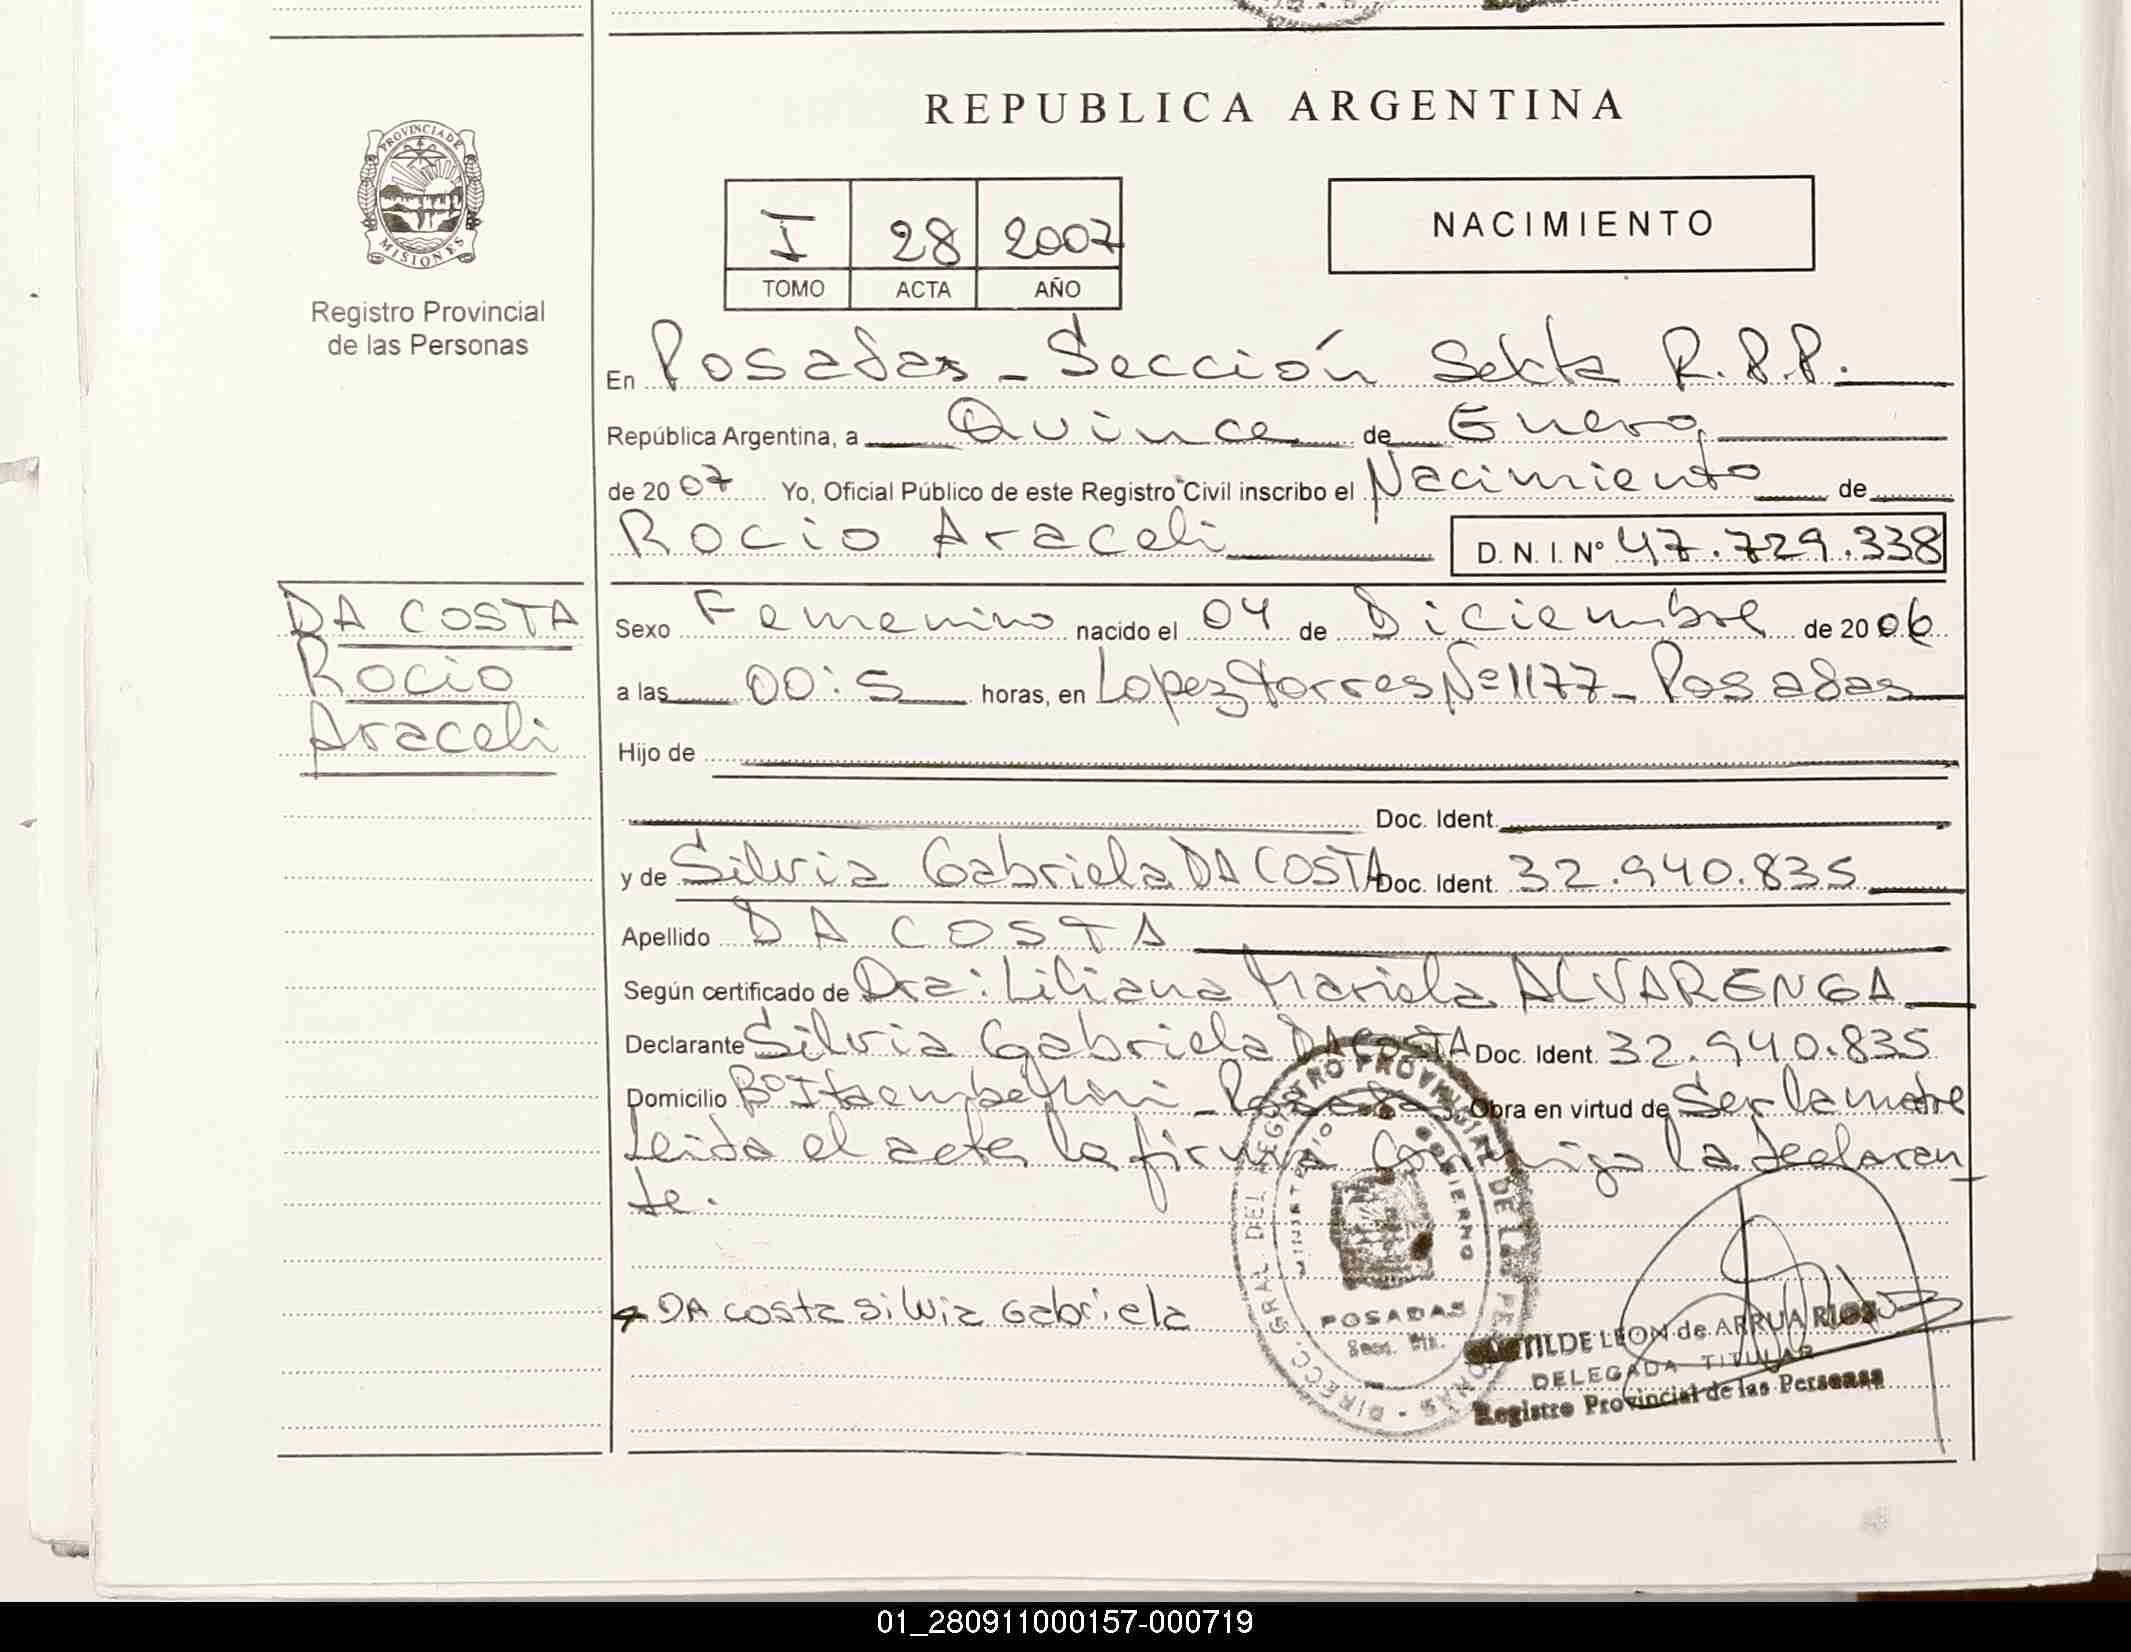 REPUBLICA ARGENTINA
PROVINCIA DE
MISIONES
Registro Provincial
de las Personas
I 28 2007
TOMO ACTA AÑO
NACIMIENTO
En Posadas - Sección Sexta R.P.P.
República Argentina, a Quince de Enero
de 2007 Yo, Oficial Público de este Registro Civil inscribo el Nacimiento de
Rocio Araceli D. N. I. Nº 47.729.338
DA COSTA
Rocio
Araceli
Sexo Femenino nacido el 04 de Diciembre de 2006
a las 00:5 horas, en Lopez Torres Nº 1177 - Posadas
Hijo de
Doc. Ident.
y de Silvia Gabriela DA COSTA Doc. Ident. 32.940.835
Apellido DA COSTA
Según certificado de Dra: Liliana Mariela ALVARENGA
Declarante Silvia Gabriela DA COSTA Doc. Ident. 32.940.835
Domicilio Bº Itaembe Mini - Posadas Obra en virtud de Ser la madre
Leida el acta la firma Conmigo la declaran
te.
DA costa silvia Gabriela
DIRECC. GRAL. DEL REGISTRO PROVINCIAL DE LAS PERSONAS
MINISTERIO GOBIERNO
POSADAS
LEON de ARRUA RIOS
DELEGADA TITULAR
Registro Provincial de las Personas
01_280911000157-000719